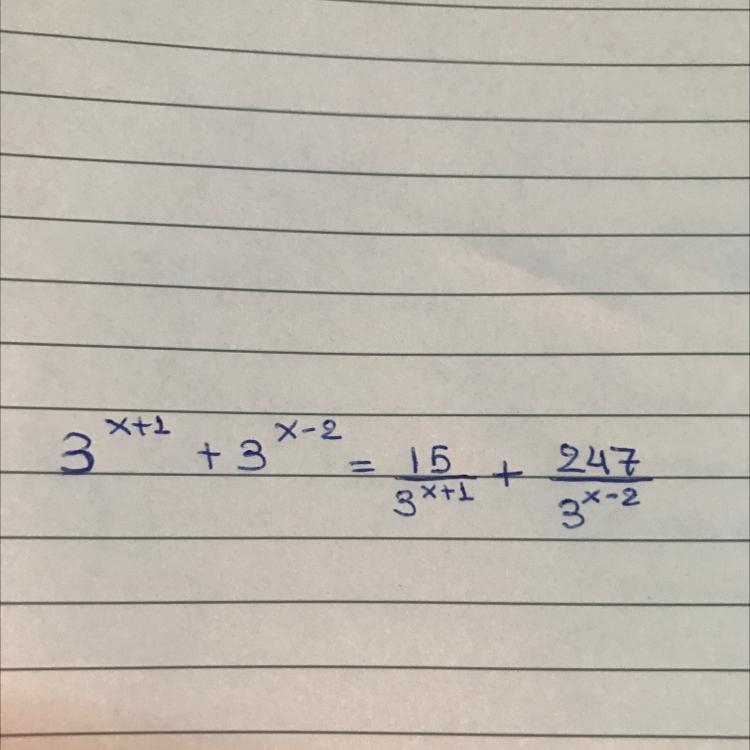 3^{x+1} + 3^{x-2} = \frac{15}{3^{x+1}} + \frac{247}{3^{x-2}}